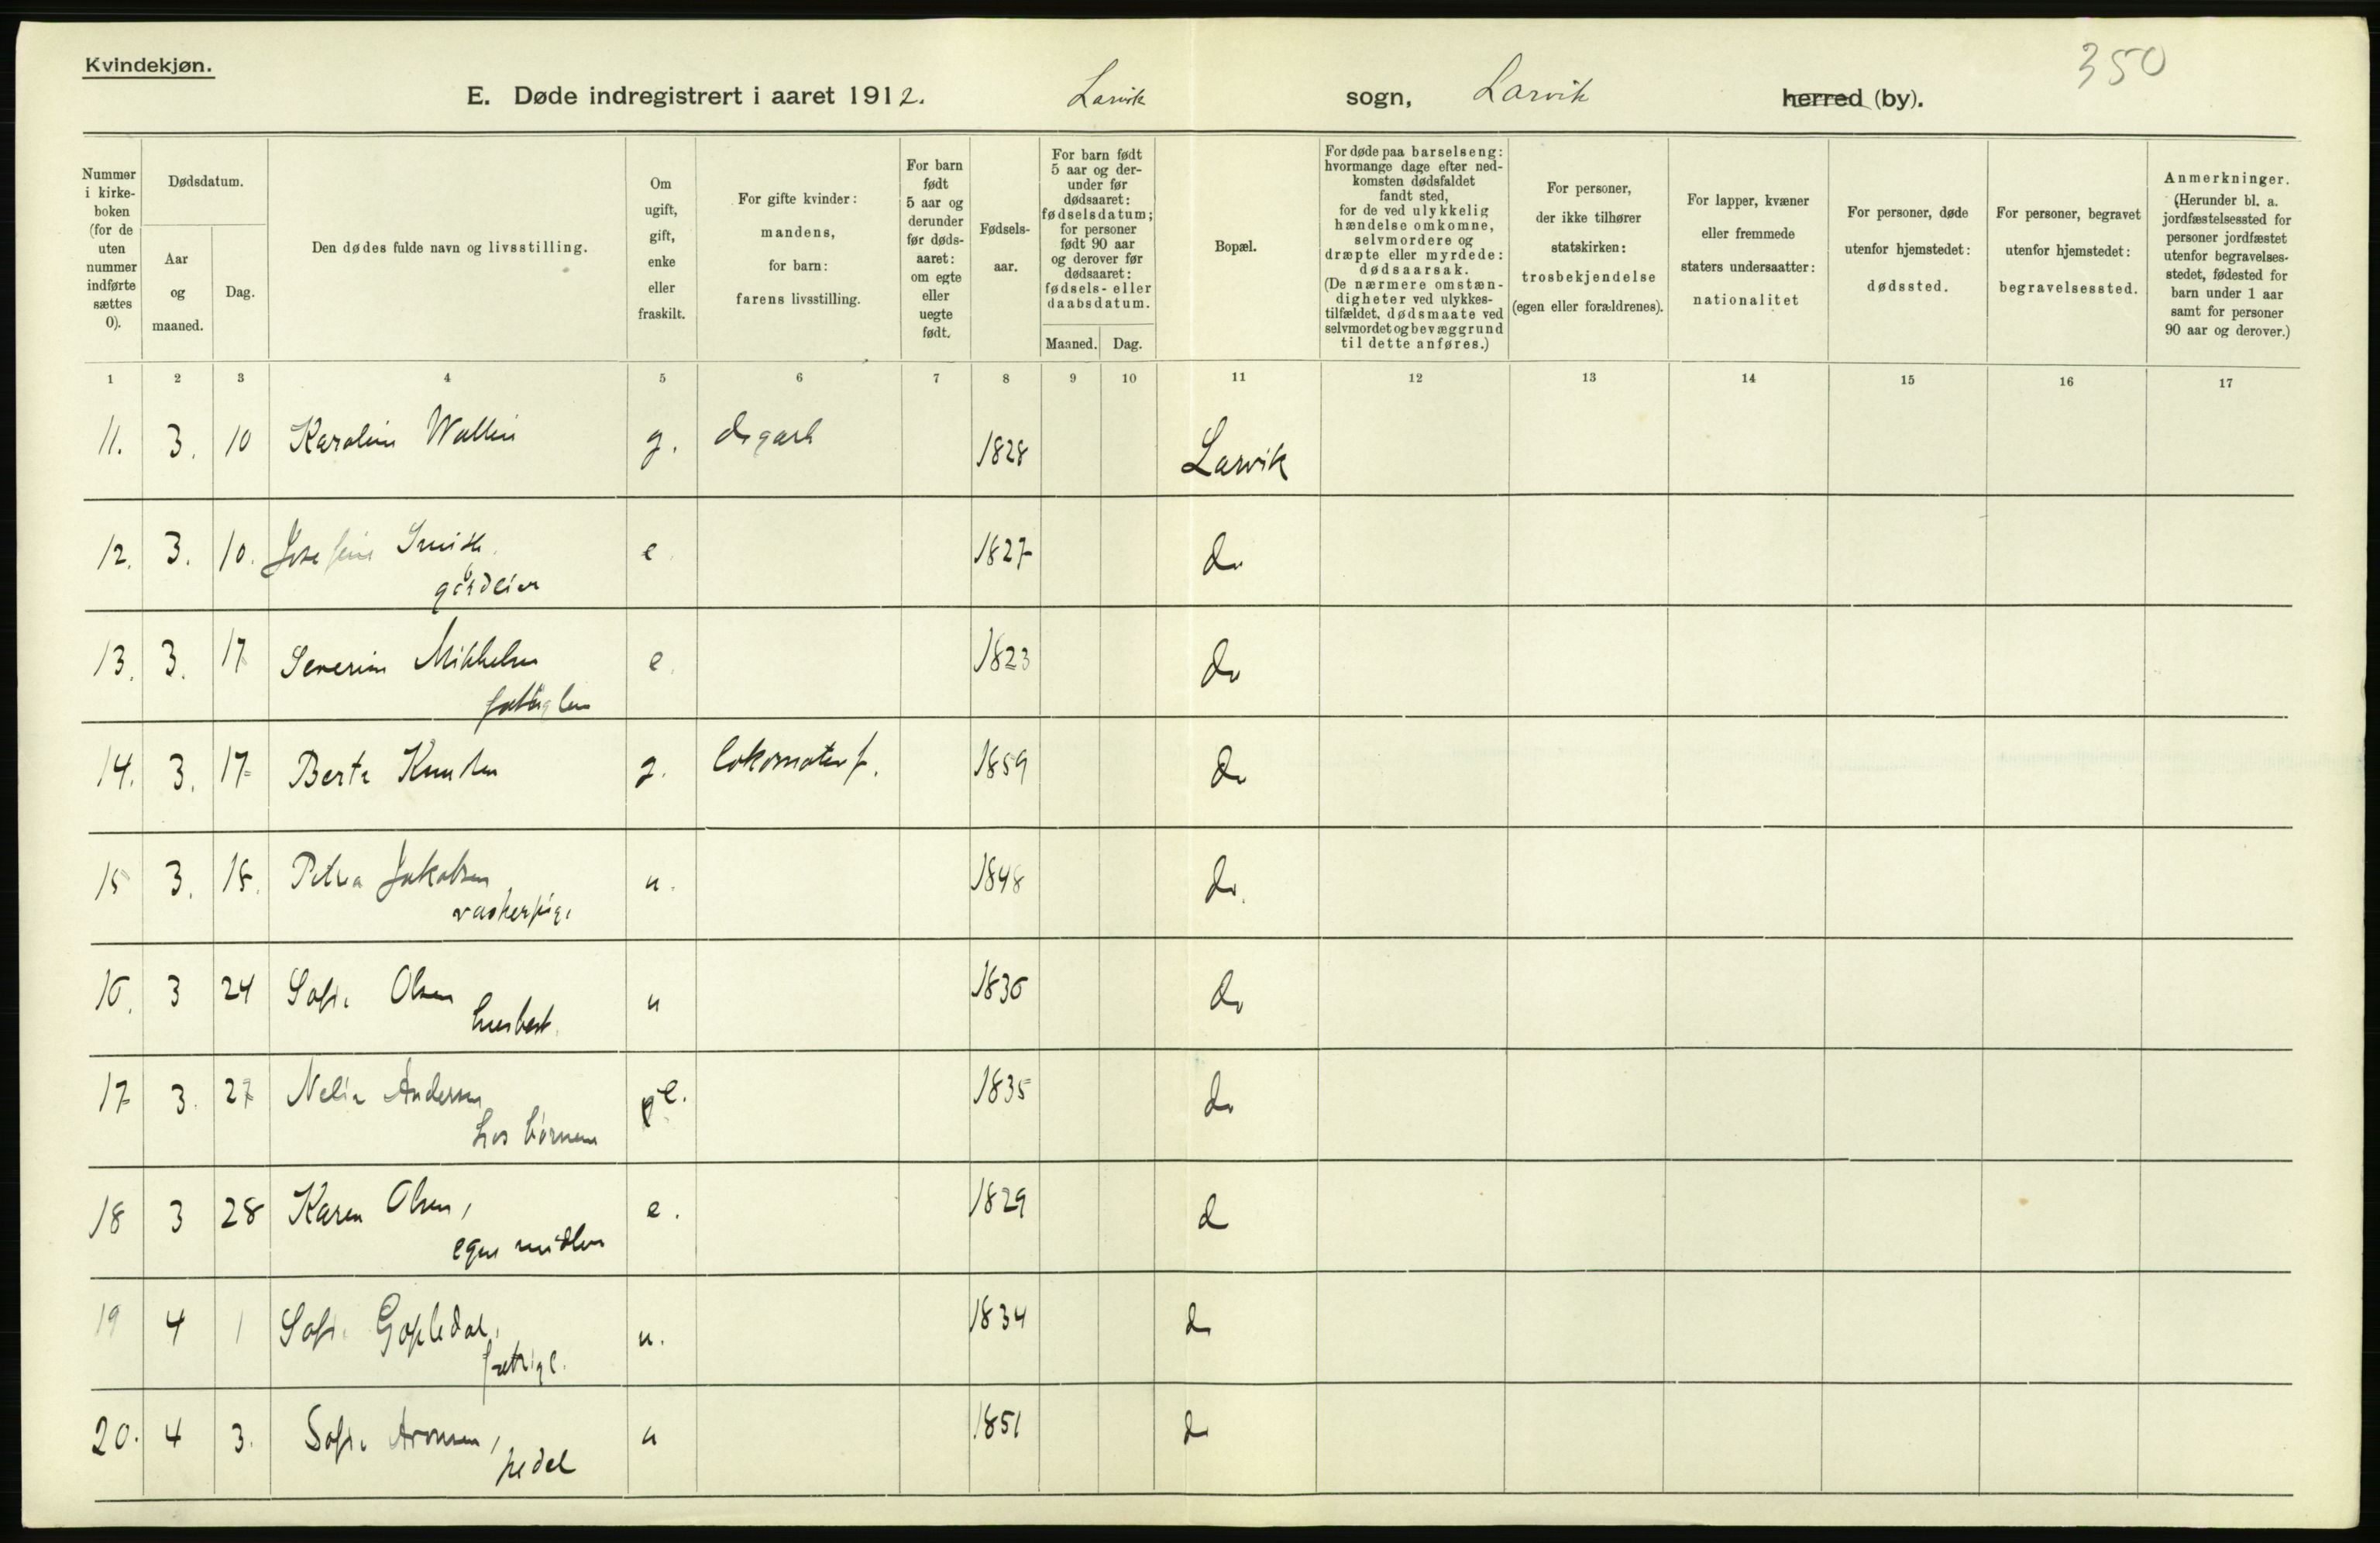 Kvindekjøn.
350
E. Døde indregistrert i aaret 1912. Larvik sogn, Larvik herred (by).
Nummer i kirke-boken (for de uten nummer indførte sættes 0).
Dødsdatum.
Aar og maaned.
Dag.
Den dødes fulde navn og livsstilling.
Om ugift, gift, enke eller fraskilt.
For gifte kvinder: mandens, for barn: farens livsstilling.
For barn født 5 aar og derunder før døds-aaret: om egte eller uegte født.
Fødsels-aar.
For barn født 5 aar og der-under før dødsaaret: fødselsdatum; for personer født 90 aar og derover før dødsaaret: fødsels- eller daabsdatum.
Maaned. Dag.
Bopæl.
For døde paa barselseng: hvormange dage efter ned-komsten dødsfaldet fandt sted, for de ved ulykkelig hændelse omkomne, selvmordere og dræpte eller myrdede: dødsaarsak. (De nærmere omstæn-digheter ved ulykkes-tilfældet, dødsmaate ved selvmordet og bevæggrund til dette anføres.)
For personer, der ikke tilhører statskirken: trosbekjendelse (egen eller forældrenes).
For lapper, kvæner eller fremmede staters undersaatter: nationalitet
For personer, døde utenfor hjemstedet: dødssted.
For personer, begravet utenfor hjemstedet: begravelsessted.
Anmerkninger. (Herunder bl. a. jordfæstelsessted for personer jordfæstet utenfor begravelses-stedet, fødested for barn under 1 aar samt for personer 90 aar og derover.)
1 2 3 4 5 6 7 8 9 10 11 12 13 14 15 16 17
11. 3. 10 Karoline Wallin g. 1828 Larvik
12. 3. 10. Josefine Smith. e. 1827 do
gårdeier
13. 3. 17 Severine Mikkelsen e. 1823 do
fattiglem
14. 3. 17 Berte Knudsen g. lokomotivf. 1859 do
15 3. 18. Petra Jakobsen u. 1848 do.
vaskerpige
16. 3 24 Sofie Olsen u 1836 do
husbest.
17 3. 27 Nelia Andersen e. 1835 do
hos børnene
18 3 28 Karen Olsen, e. 1829 d
egne midler
19 4 1 Sofie Gopledal, u. 1834 do
20. 4 3. Sofie Aronsen, u 1851 do